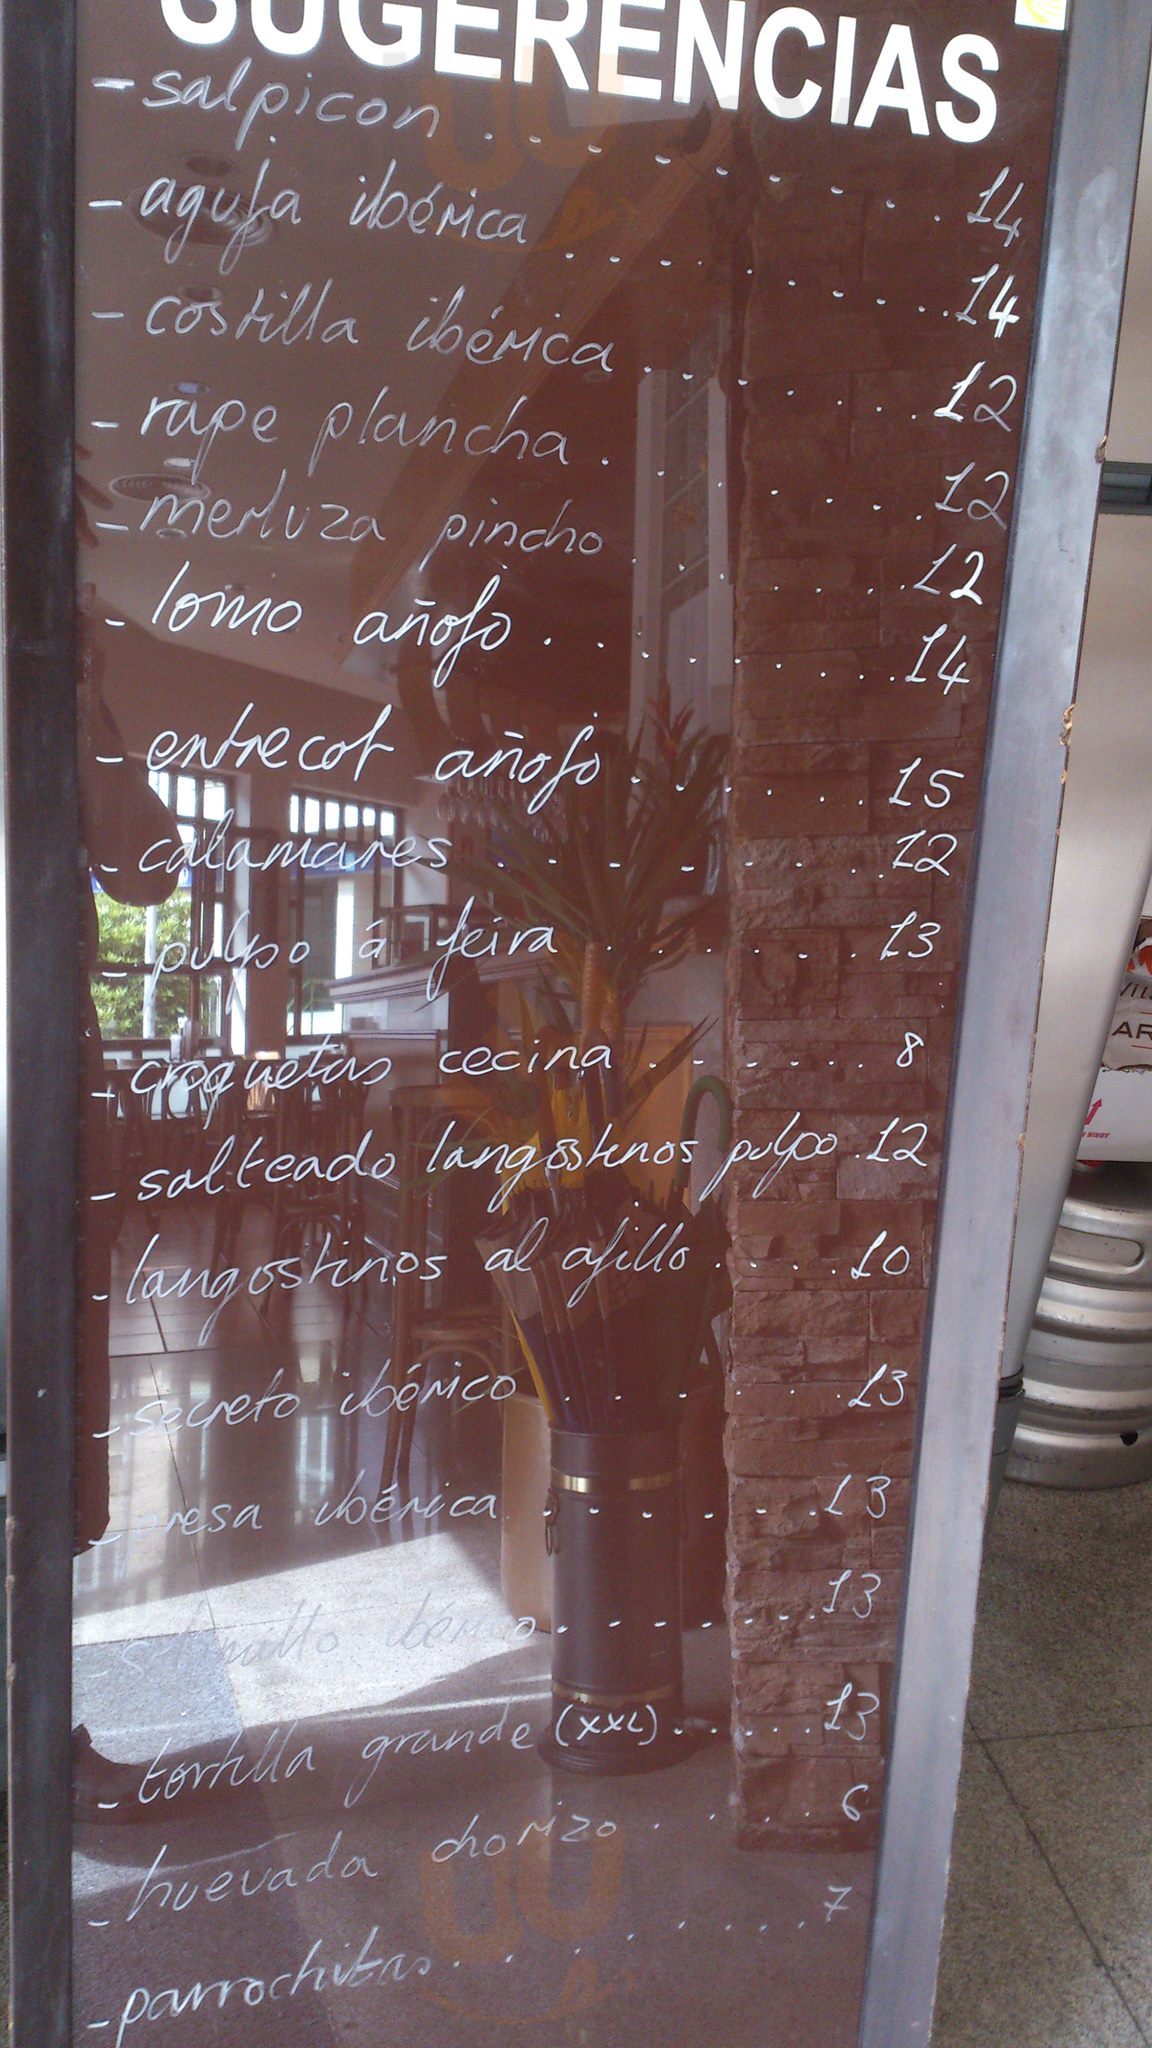 SUGERENCIAS
- salpicon . . . . . . . . . . 14
- aguja ibérica . . . . . . . . . . 14
- costilla ibérica . . . . . . . . 12
- rape plancha . . . . . . . . 12
- merluza pincho . . . . . . . . 12
- lomo añojo . . . . . . . . . 14
- entrecot añojo . . . . . . . 15
- calamares . . . . . . . . 12
- pulpo á feira . . . . . . . . 13
- croquetas cecina . . . . . . . 8
- salteado langostinos pulpo . 12
- langostinos al ajillo . . . . . 10
- secreto ibérico . . . . . . . . 13
- presa ibérica . . . . . . . . 13
- solomillo ibérico . . . . . . . . 13
- tortilla grande (XXL) . . . . . 13
- huevada chorizo . . . . . . 6
- parrochitas . . . . . . . . 7
AR